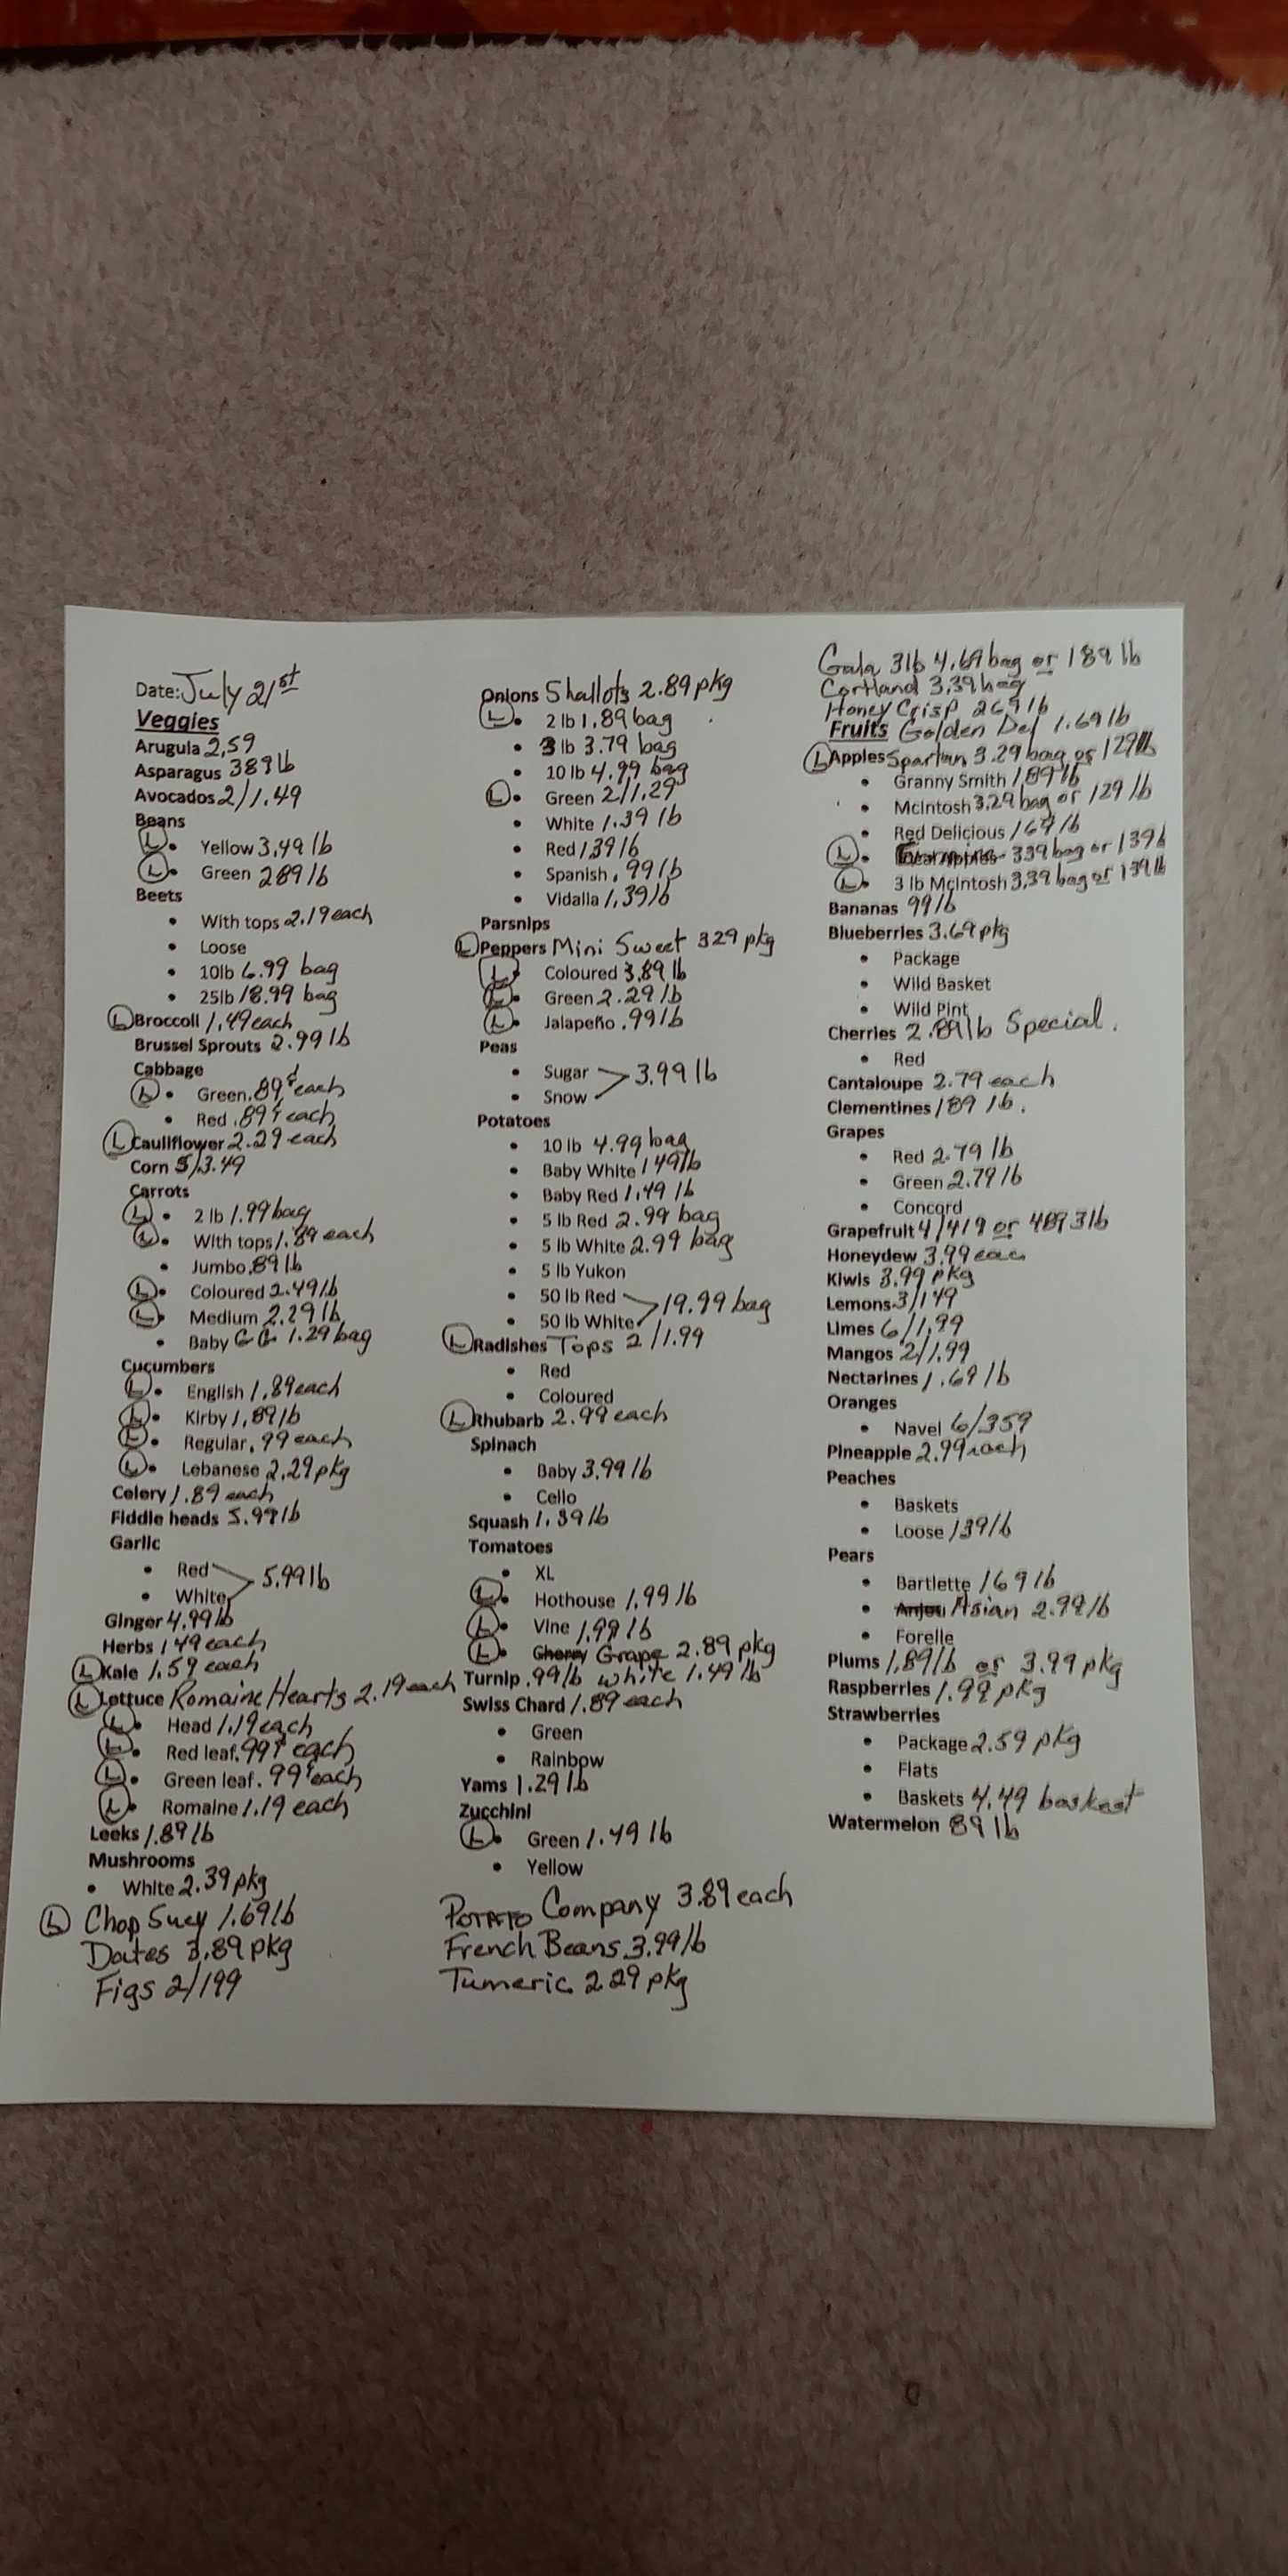 Date: July 21st
Veggies
Arugula 2.59
Asparagus 389 lb
Avocados 2/1.49
Beans
Ⓛ • Yellow 3.49 lb
Ⓛ • Green 289 lb
Beets
• With tops 2.19 each
• Loose
• 10lb 6.99 bag
• 25lb 18.99 bag
Ⓛ Broccoli 1.49 each
Brussel Sprouts 2.99 lb
Cabbage
Ⓛ • Green .89¢ each
• Red .89¢ each
Ⓛ Cauliflower 2.29 each
Corn 5/3.49
Carrots
Ⓛ • 2 lb 1.99 bag
Ⓛ • With tops 1.89 each
• Jumbo .89 lb
Ⓛ • Coloured 2.49 lb
Ⓛ • Medium 2.29 lb
• Baby G.G. 1.29 bag
Cucumbers
Ⓛ • English 1.89 each
Ⓛ • Kirby 1.89 lb
Ⓛ • Regular .99 each
Ⓛ • Lebanese 2.29 pkg
Celery 1.89 each
Fiddle heads 5.99 lb
Garlic
• Red
• White 5.99 lb
Ginger 4.99 lb
Herbs 149 each
Ⓛ Kale 1.59 each
Ⓛ Lettuce Romaine Hearts 2.19 each
Ⓛ • Head 1.19 each
Ⓛ • Red leaf .99¢ each
Ⓛ • Green leaf .99¢ each
Ⓛ • Romaine 1.19 each
Leeks 1.89 lb
Mushrooms
• White 2.39 pkg
Ⓛ Chop Suey 1.69 lb
Dates 3.89 pkg
Figs 2/199
Onions Shallots 2.89 pkg
Ⓛ • 2 lb 1.89 bag
• 3 lb 3.79 bag
• 10 lb 4.99 bag
Ⓛ • Green 2/1.29
• White 1.39 lb
• Red 1.39 lb
• Spanish .99 lb
• Vidalla 1.39 lb
Parsnips
Ⓛ Peppers Mini Sweet 329 pkg
Ⓛ • Coloured 3.89 lb
Ⓛ • Green 2.29 lb
Ⓛ • Jalapeño .99 lb
Peas
• Sugar
• Snow 3.99 lb
Potatoes
• 10 lb 4.99 bag
• Baby White 149 lb
• Baby Red 1.49 lb
• 5 lb Red 2.99 bag
• 5 lb White 2.99 bag
• 5 lb Yukon
• 50 lb Red
• 50 lb White 19.99 bag
Ⓛ Radishes Tops 2/1.99
• Red
• Coloured
Ⓛ Rhubarb 2.99 each
Spinach
• Baby 3.99 lb
• Cello
Squash 1.39 lb
Tomatoes
• XL
Ⓛ • Hothouse 1.99 lb
Ⓛ • Vine 1.99 lb
Ⓛ • Cherry Grape 2.89 pkg
Turnip .99 lb White 1.49 lb
Swiss Chard 1.89 each
• Green
• Rainbow
Yams 1.29 lb
Zucchini
Ⓛ • Green 1.49 lb
• Yellow
POTATO Company 3.89 each
French Beans 3.99 lb
Tumeric 2.29 pkg
Gala 3lb 4.69 bag or 189 lb
Cortland 3.39 bag
Honey Crisp 269 lb
Fruits Golden Del 1.69 lb
Ⓛ Apples Spartan 3.29 bag or 129 lb
• Granny Smith 1.89 lb
• McIntosh 3.29 bag or 129 lb
• Red Delicious 169 lb
Ⓛ • 339 bag or 139 lb
Ⓛ • 3 lb McIntosh 3.39 bag or 139 lb
Bananas 99 lb
Blueberries 3.69 pkg
• Package
• Wild Basket
• Wild Pint
Cherries 2.89 lb Special.
• Red
Cantaloupe 2.79 each
Clementines 189 lb.
Grapes
• Red 2.79 lb
• Green 2.79 lb
• Concord
Grapefruit 4/419 or 489 3lb
Honeydew 3.99 eac
Kiwis 3.99 pkg
Lemons 3/149
Limes 6/1.99
Mangos 2/1.99
Nectarines 1.69 lb
Oranges
• Navel 6/359
Pineapple 2.99 each
Peaches
• Baskets
• Loose 139 lb
Pears
• Bartlette 169 lb
• Anjou Asian 2.99 lb
• Forelle
Plums 1.89 lb or 3.99 pkg
Raspberries 1.99 pkg
Strawberries
• Package 2.59 pkg
• Flats
• Baskets 4.49 baskeet
Watermelon 89 lb